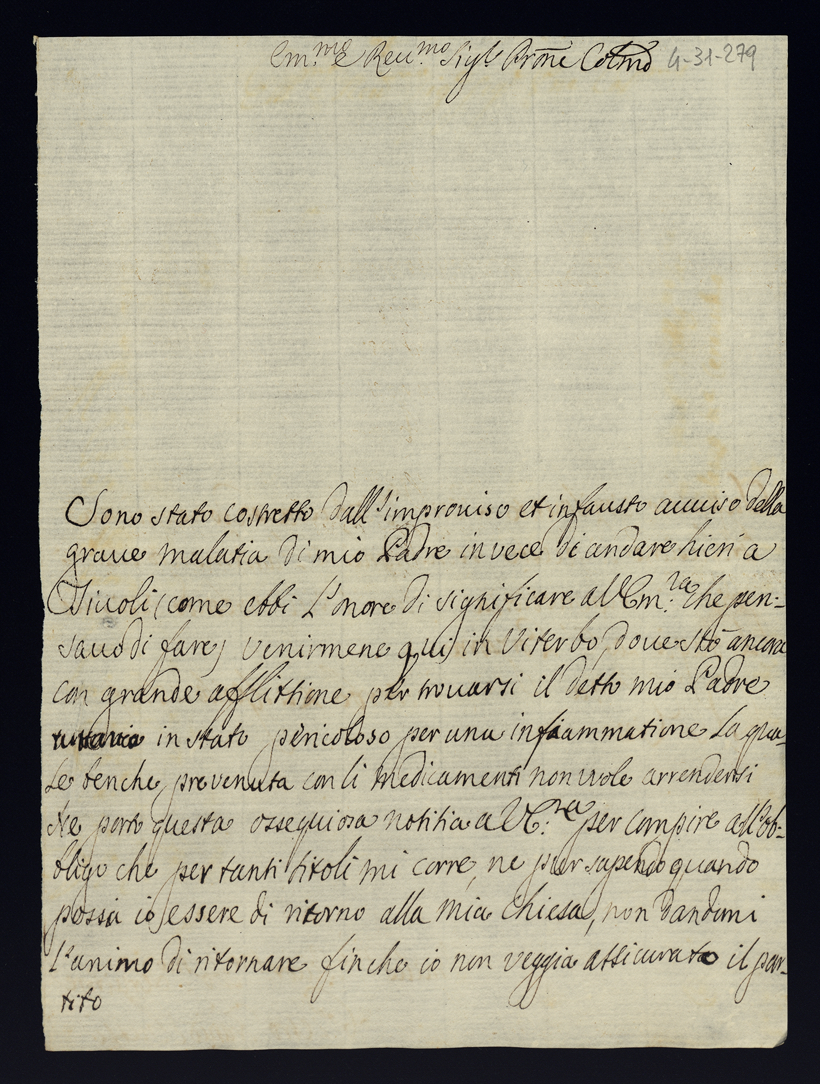 Em.mo e Reu.mo Sig.r Pröne Colmo 4-31-279
Sono stato costretto dall'improuiso et infausto auuiso della
graue malatia di mio Padre in vece di andare hieri a
Tiuoli (come ebbi l'onore di significare a V Em.za che pen-
sauo di fare) venirmene qui in Viterbo, doue stò ancora
con grande afflittione per trouarsi il detto mio Padre
tuttauia in stato pericoloso per una infiammatione la qua-
le benche preuenuta con li medicamenti non vuole arrendersi
Ne porto questa ossequiosa notitia a V E.za per compire all'ob-
bligo che per tanti titoli mi corre, ne pur sapendo quando
possa io essere di ritorno alla mia Chiesa, non dandomi
l'animo di ritornare finche io non veggia assicurato il par-
tito